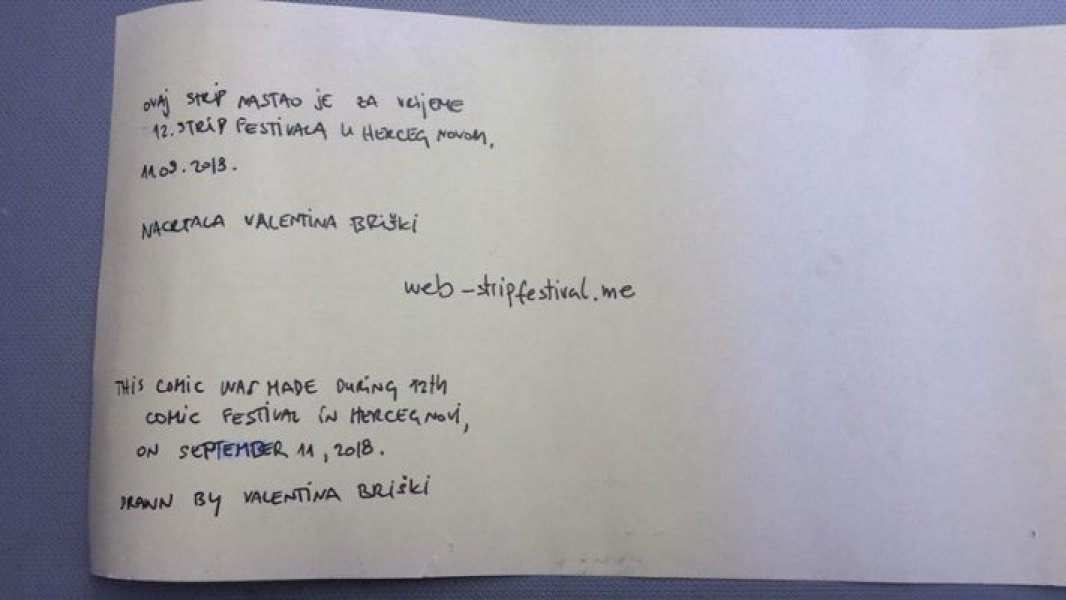 OVAJ STRIP NASTAO JE ZA VRIJEME
12. STRIP FESTIVALA U HERCEG NOVOM,
11.09.2018.
NACRTALA VALENTINA BRIŠKI
web-stripfestival.me
THIS COMIC WAS MADE DURING 12th
COMIC FESTIVAL IN HERCEG NOVI,
ON SEPTEMBER 11, 2018.
DRAWN BY VALENTINA BRIŠKI